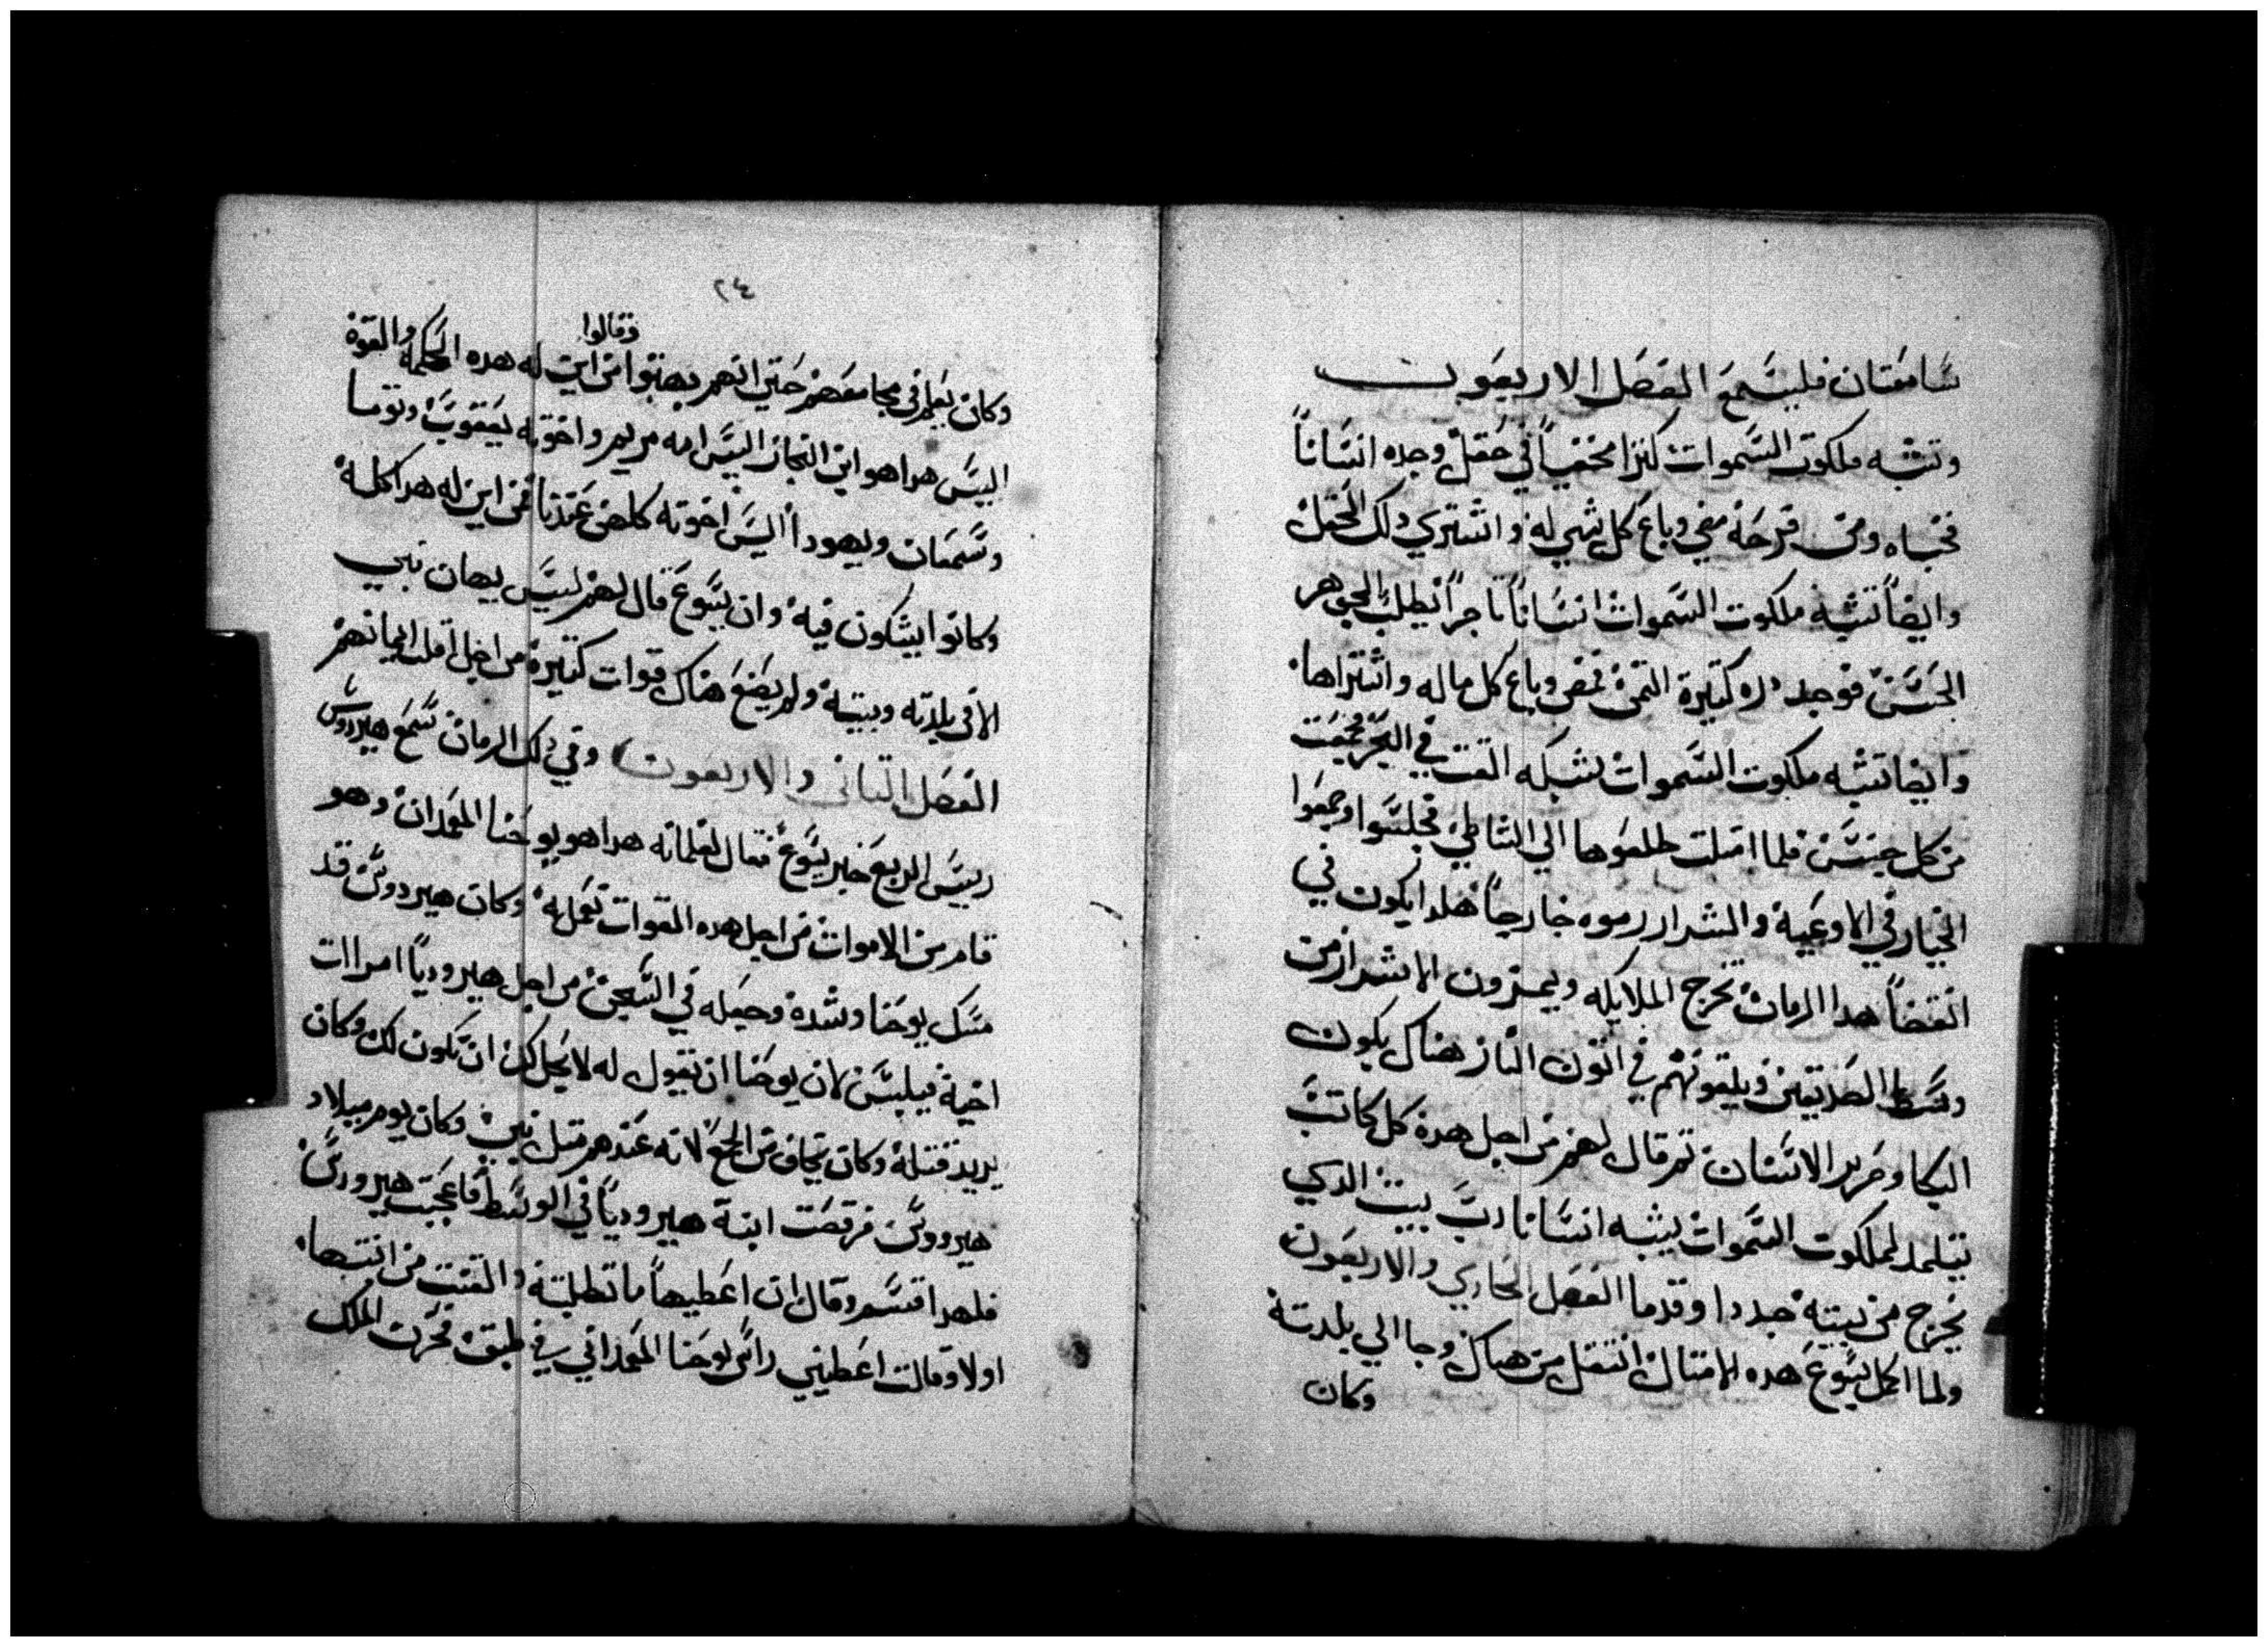 سامعتان فليسمع الفصل الاربعون
وتشبه ملكوت السموات كنزا مخفياً في حقل وجده انساناً
فخباه ومن فرحه مضي وباع كل شي له واشتري دلك الحقل
وايضاً تشبه ملكوت السموات انساناً تاجراً يطلب الجوهر
الحسن فوجد دره كتيرة التمن فمضي وباع كل ماله واشتراها
وايضا تشبه ملكوت السموات شبكه القت في البحر فجمعت
من كل جنس فلما امتلت طلعوها الي الشاطي فجلسوا وجمعوا
الخيار في الاوعية والشرار رموه خارجاً هكدا يكون في
انقضاً هدا الزمان تخرج الملايكه ويميزون الاشرار من
وسط الصديقين ويلقونهم في اتون النار هناك يكون
البكا وصرير الاسنان تم قال لهم من اجل هده كل كاتب
يتلمد لملكوت السموات يشبه انسانا رب بيت الدي
يخرج من بيته جددا وقدما الفصل الحادي والاربعون
ولما اكمل يسوع هده الامتال انتقل من هناك وجا الي بلدته
وكان
٢٤
وقالوا
وكان يعلم في مجامعهم حتي انهم بهتوا من اين له هده الحكمة والقوة
اليس هدا هو ابن النجار اليس امه مريم واخوته يعقوب وتوما
وسمعان ويهودا اليس اخوته كلهن عندنا فمن اين له هدا كله
وكانوا يشكون فيه وان يسوع قال لهم ليس يهان نبي
الا في بلدته وبيته ولم يضع هناك قوات كتيرة من اجل اقلت ايمانهم
الفصل التاني والاربعون وفي دلك الزمان سمع هيرودس
رييس الربع خبر يسوع فقال لغلمانه هدا هو يوحنا المعمدان وهو
قام من الاموات من اجل هده القوات تعمل به وكان هيرودس قد
مسك يوحنا وشده وجعله في السجن من اجل هيروديا امرات
اخيه فيلبس لان يوحنا ان يقول له لا يحل لك ان تكون لك وكان
يريد قتله وكان يخاف من الجمع لانه عندهم متل نبي وكان يوم ميلاد
هيرودس فرقصت ابنة هيروديا في الوسط فاعجبت هيرودس
فلهدا قسم وقال ان اعطيها ما تطلبه والقنت من انتهاء
اولا وقالت اعطيني راس يوحنا المعمداني في طبق فحزن الملك